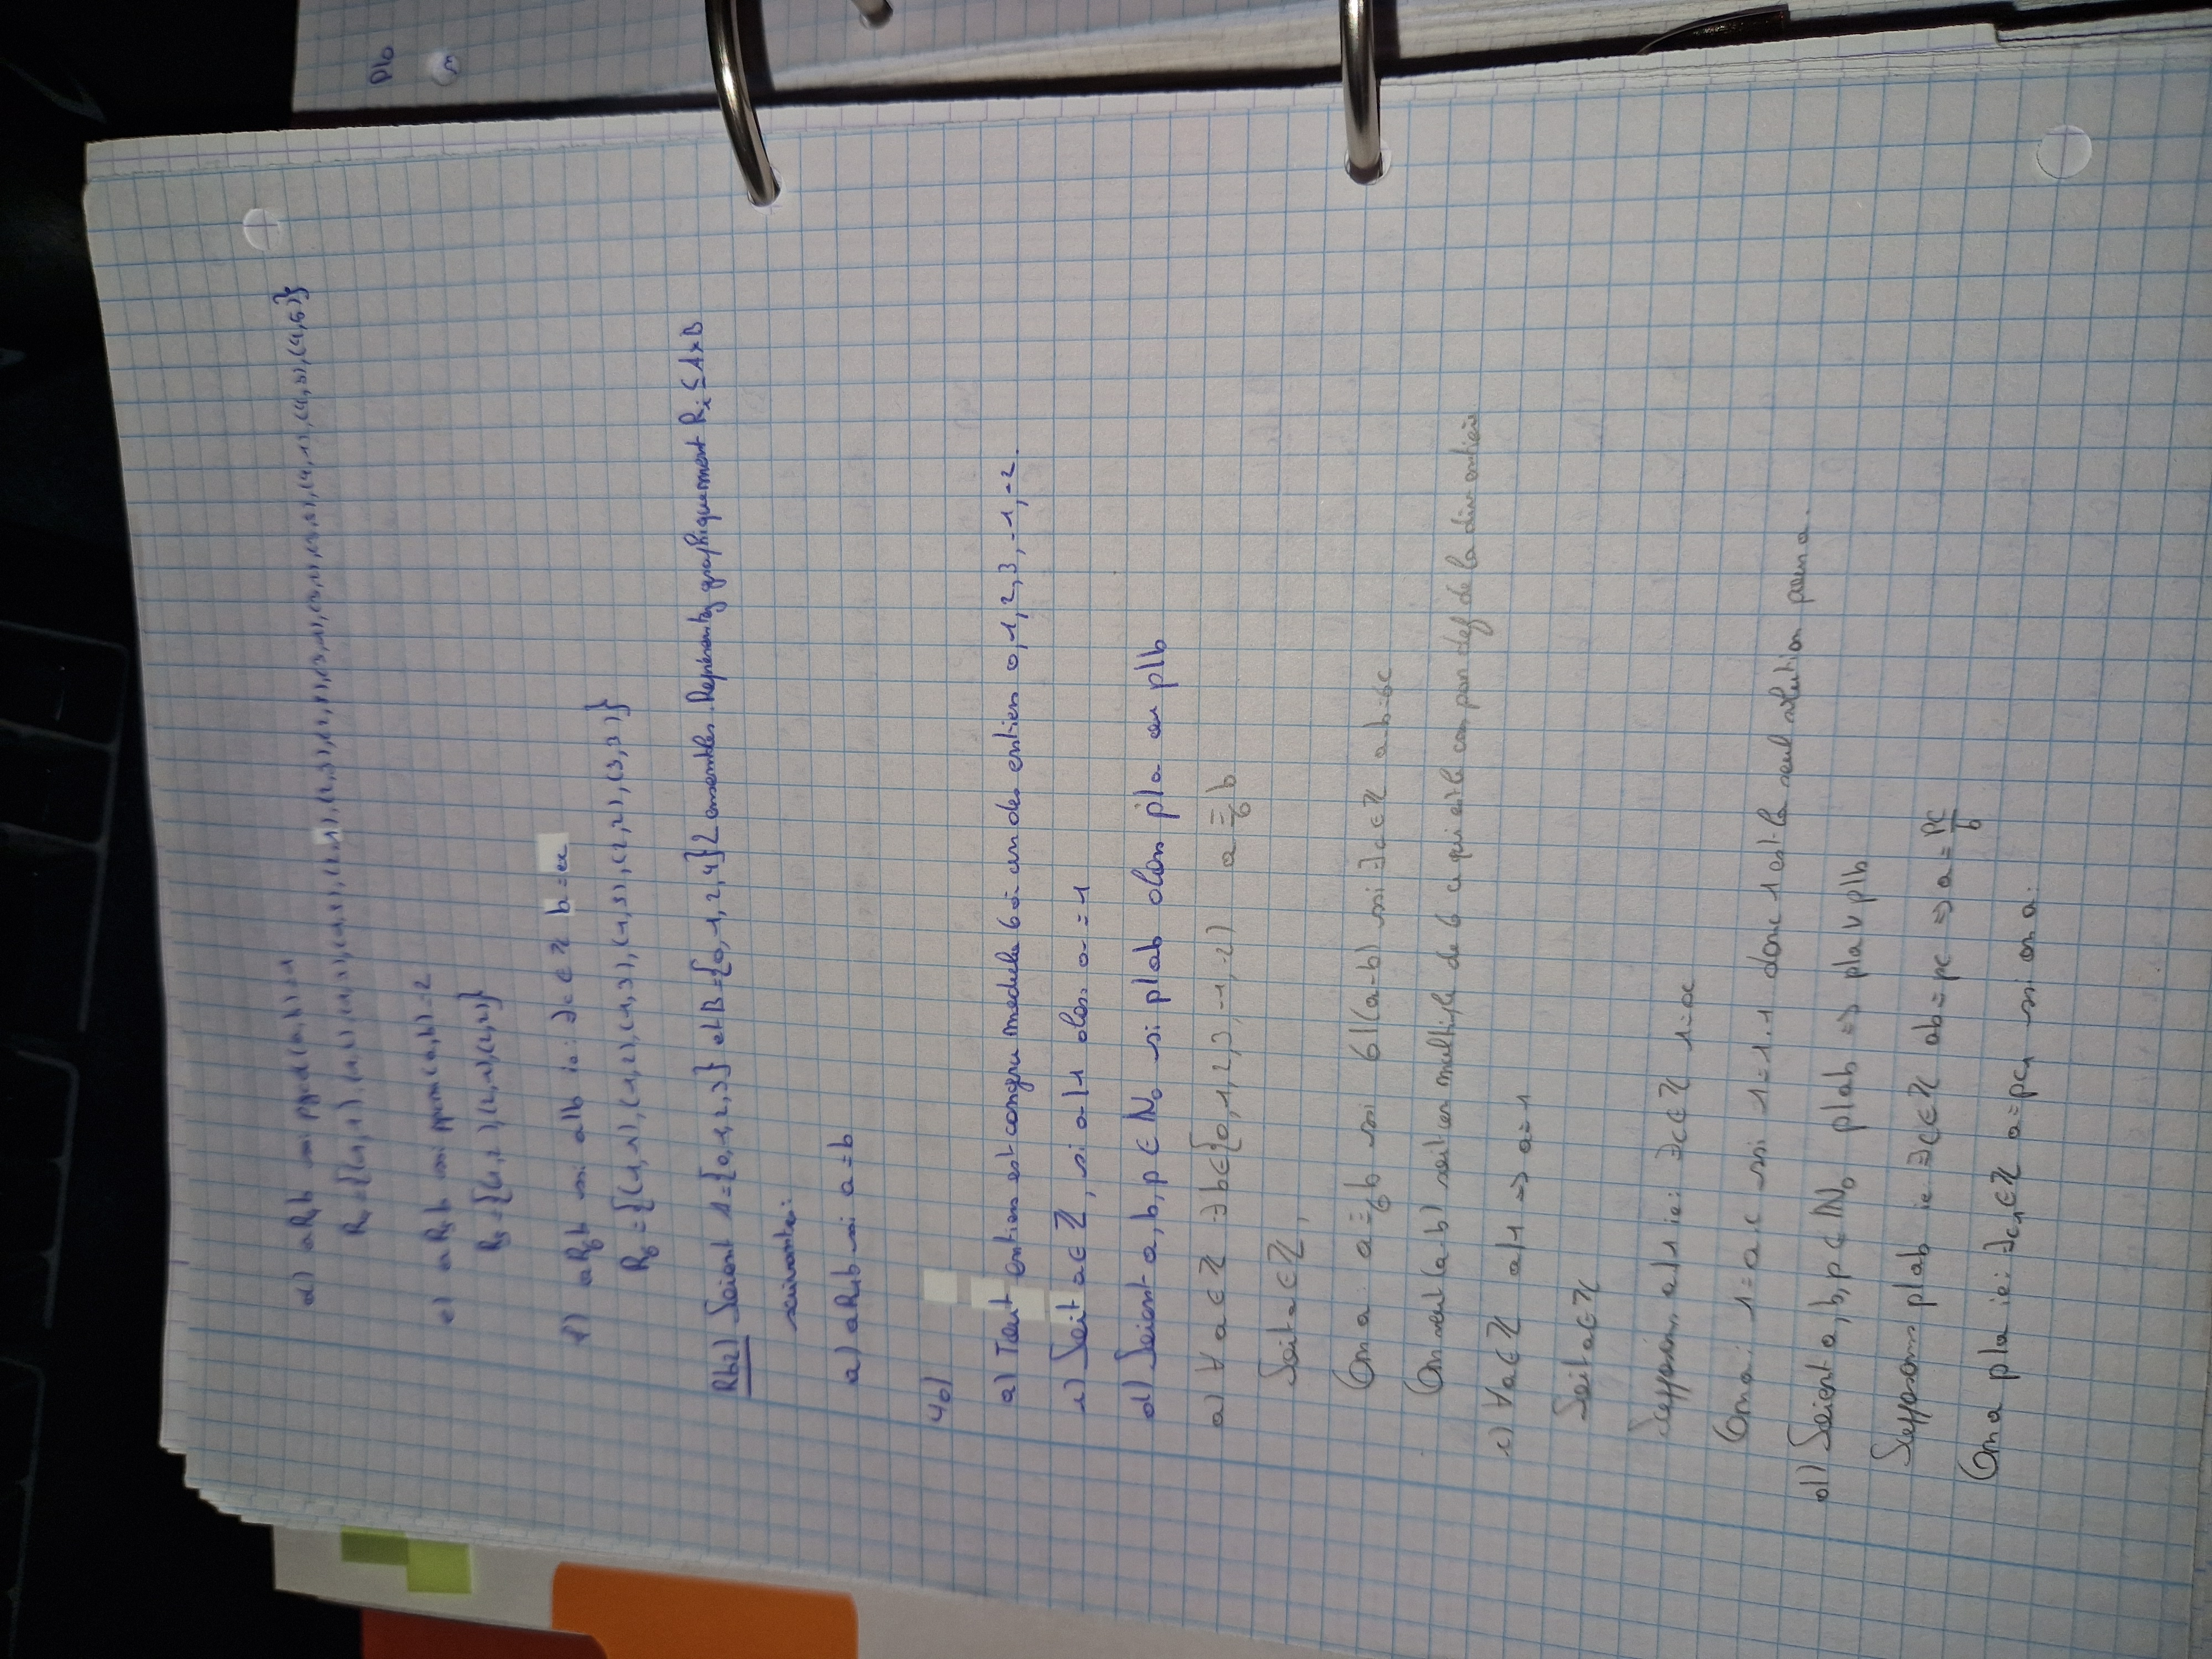 d) aR₄b ssi pgcd(a,b)=1
R₄={(1,1),(1,2),(1,3),(1,5),(2,1),(2,3),(2,5),(3,1),(3,2),(3,5),(4,1),(4,3),(4,5)}
e) aR₅b ssi ppcm(a,b)=2
R₅={(1,2),(2,1),(2,2)}
f) aR₆b ssi a|b ie: ∃c∈ℤ b=ac
R₆={(1,1),(1,2),(1,3),(1,5),(2,2),(3,3)}
Rb2) Soient A={0,1,2,3} et B={0,1,2,4} 2 ensembles. Représentez graphiquement Rᵢ⊆A×B
suivante:
a) aR₁b ssi a=b
40)
a) Tout entiers est congru modulo 6 à un des entiers 0,1,2,3,-1,-2.
c) Soit a∈ℤ, si a|1 alors a=1
d) Soient a,b,p∈ℕ₀ si p|ab alors p|a ou p|b
a) ∀a∈ℤ ∃b∈{0,1,2,3,-1,-2} a≡₆b
Soit a∈ℤ,
On a: a≡₆b ssi 6|(a-b) ssi ∃c∈ℤ a-b=6c
On veut (a-b) soit un multiple de 6 ce qui est le cas par def de la div entière
c) ∀a∈ℤ a|1 => a=1
Soit a∈ℤ
Supposons a|1 ie: ∃c∈ℤ 1=ac
On a: 1=a.c ssi 1=1.1 donc 1 est la seul solution pour a.
d) Soient a,b,p∈ℕ₀ p|ab => p|a ∨ p|b
Supposons p|ab ie ∃c∈ℤ ab=pc => a=pc/b
On a p|a ie: ∃c₁∈ℤ a=pc₁ ssi on a:
P10